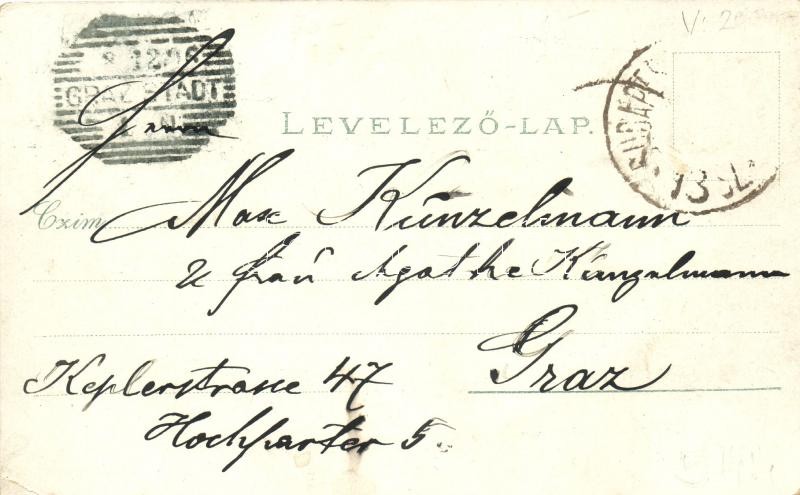 V. 2
GRAZ STADT
LEVELEZŐ-LAP.
BUDAPEST
13
Czim
Max Künzelmann
u frau Agathe Künzelmann
Graz
Keplerstrasse 47
Hochparter 5.